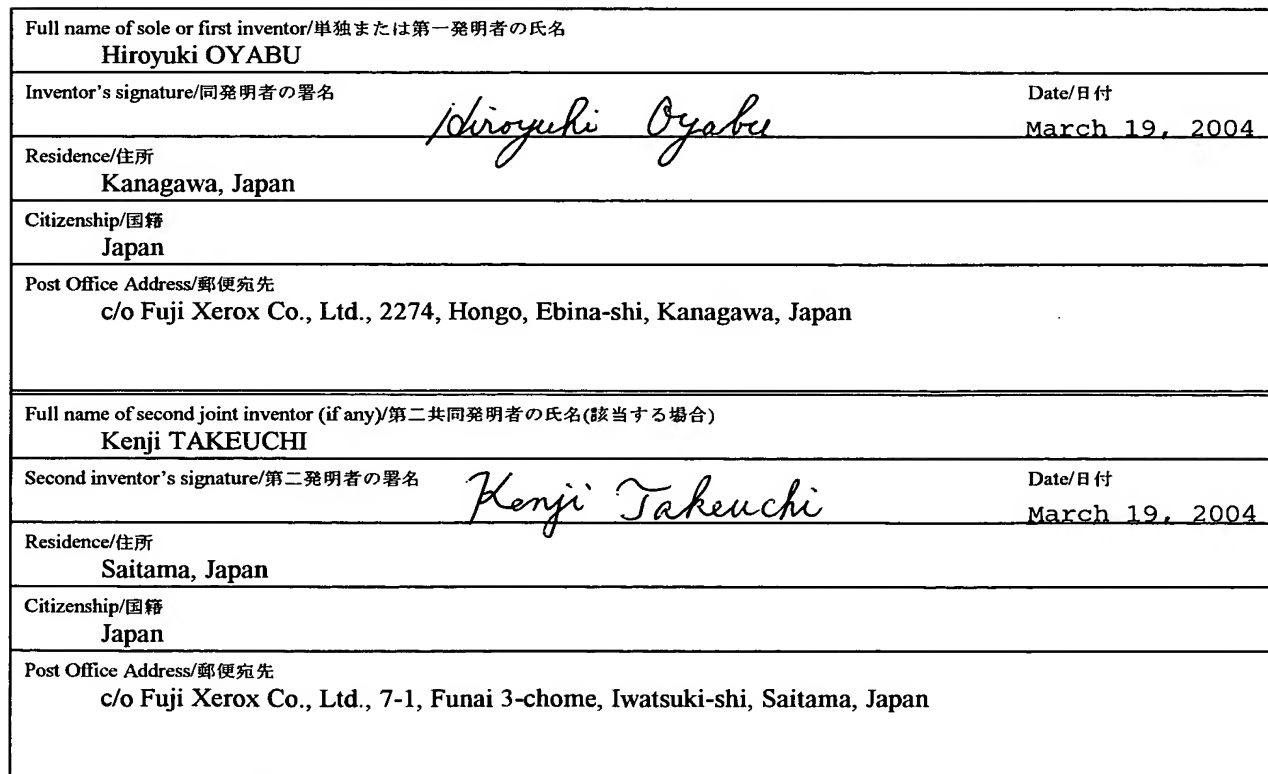 Full name of sole or first inventor/単独または第一発明者の氏名
Hiroyuki OYABU
Inventor's signature/同発明者の署名
Hiroyuki Oyabu
Date/日付
March 19, 2004
Residence/住所
Kanagawa, Japan
Citizenship/国籍
Japan
Post Office Address/郵便宛先
c/o Fuji Xerox Co., Ltd., 2274, Hongo, Ebina-shi, Kanagawa, Japan
Full name of second joint inventor (if any)/第二共同発明者の氏名(該当する場合)
Kenji TAKEUCHI
Second inventor's signature/第二発明者の署名
Kenji Takeuchi
Date/日付
March 19, 2004
Residence/住所
Saitama, Japan
Citizenship/国籍
Japan
Post Office Address/郵便宛先
c/o Fuji Xerox Co., Ltd., 7-1, Funai 3-chome, Iwatsuki-shi, Saitama, Japan